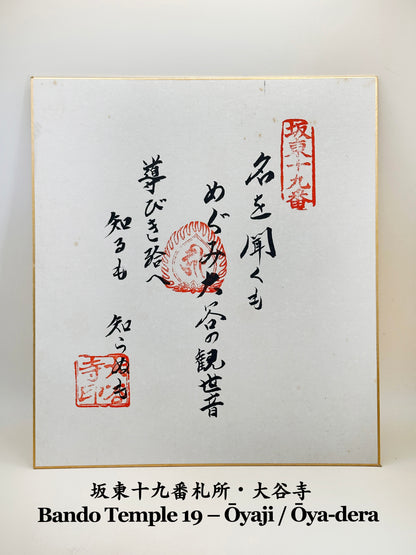 坂東十九番
名を聞くも
めぐみ大谷の観世音
導びき給へ
知るも 知らぬも
大谷寺印
坂東十九番札所・大谷寺
Bando Temple 19 – Ōyaji / Ōya-dera